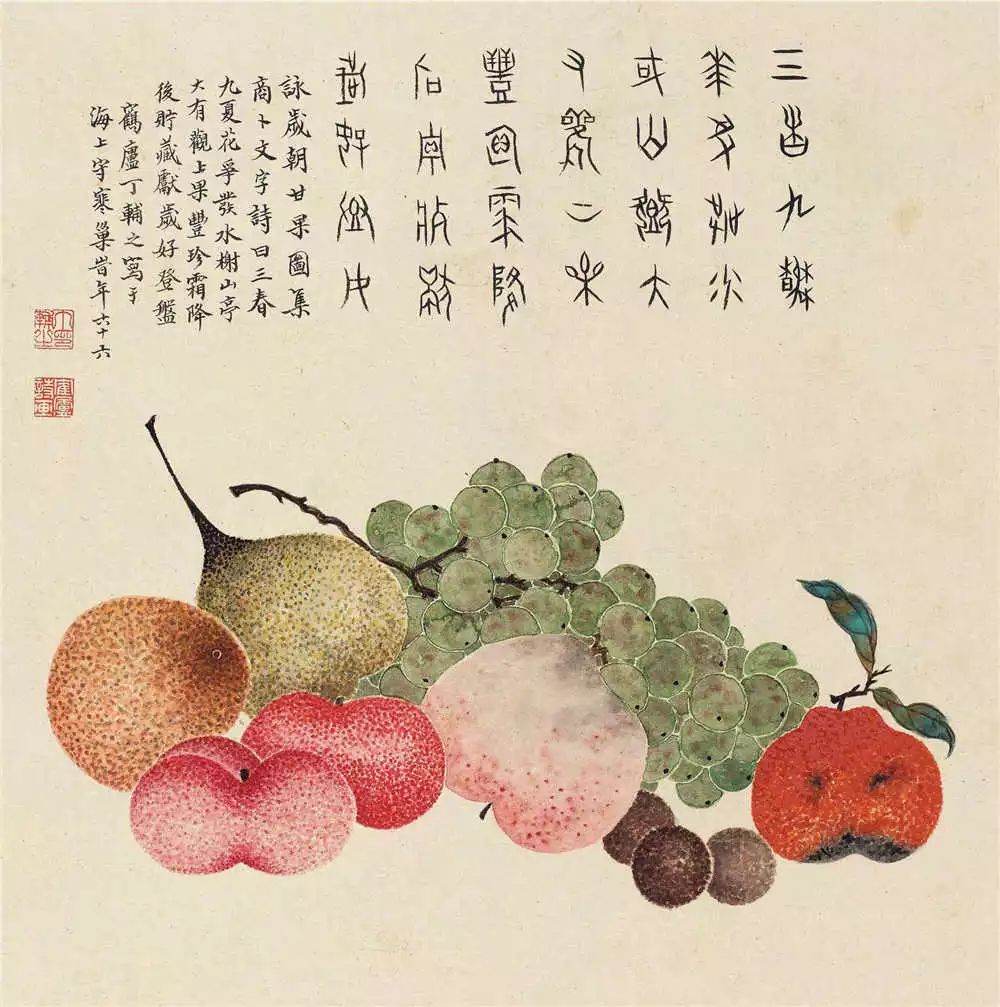 三春九夏
花爭發水
榭山亭大
有觀上果
豐珍霜降
后貯藏獻
歲好登盤
詠歲朝甘果圖集
商卜文字詩曰三春
九夏花爭發水榭山亭
大有觀上果豐珍霜降
後貯藏獻歲好登盤
鶴廬丁輔之寫于
海上守寒巢旹年六十六